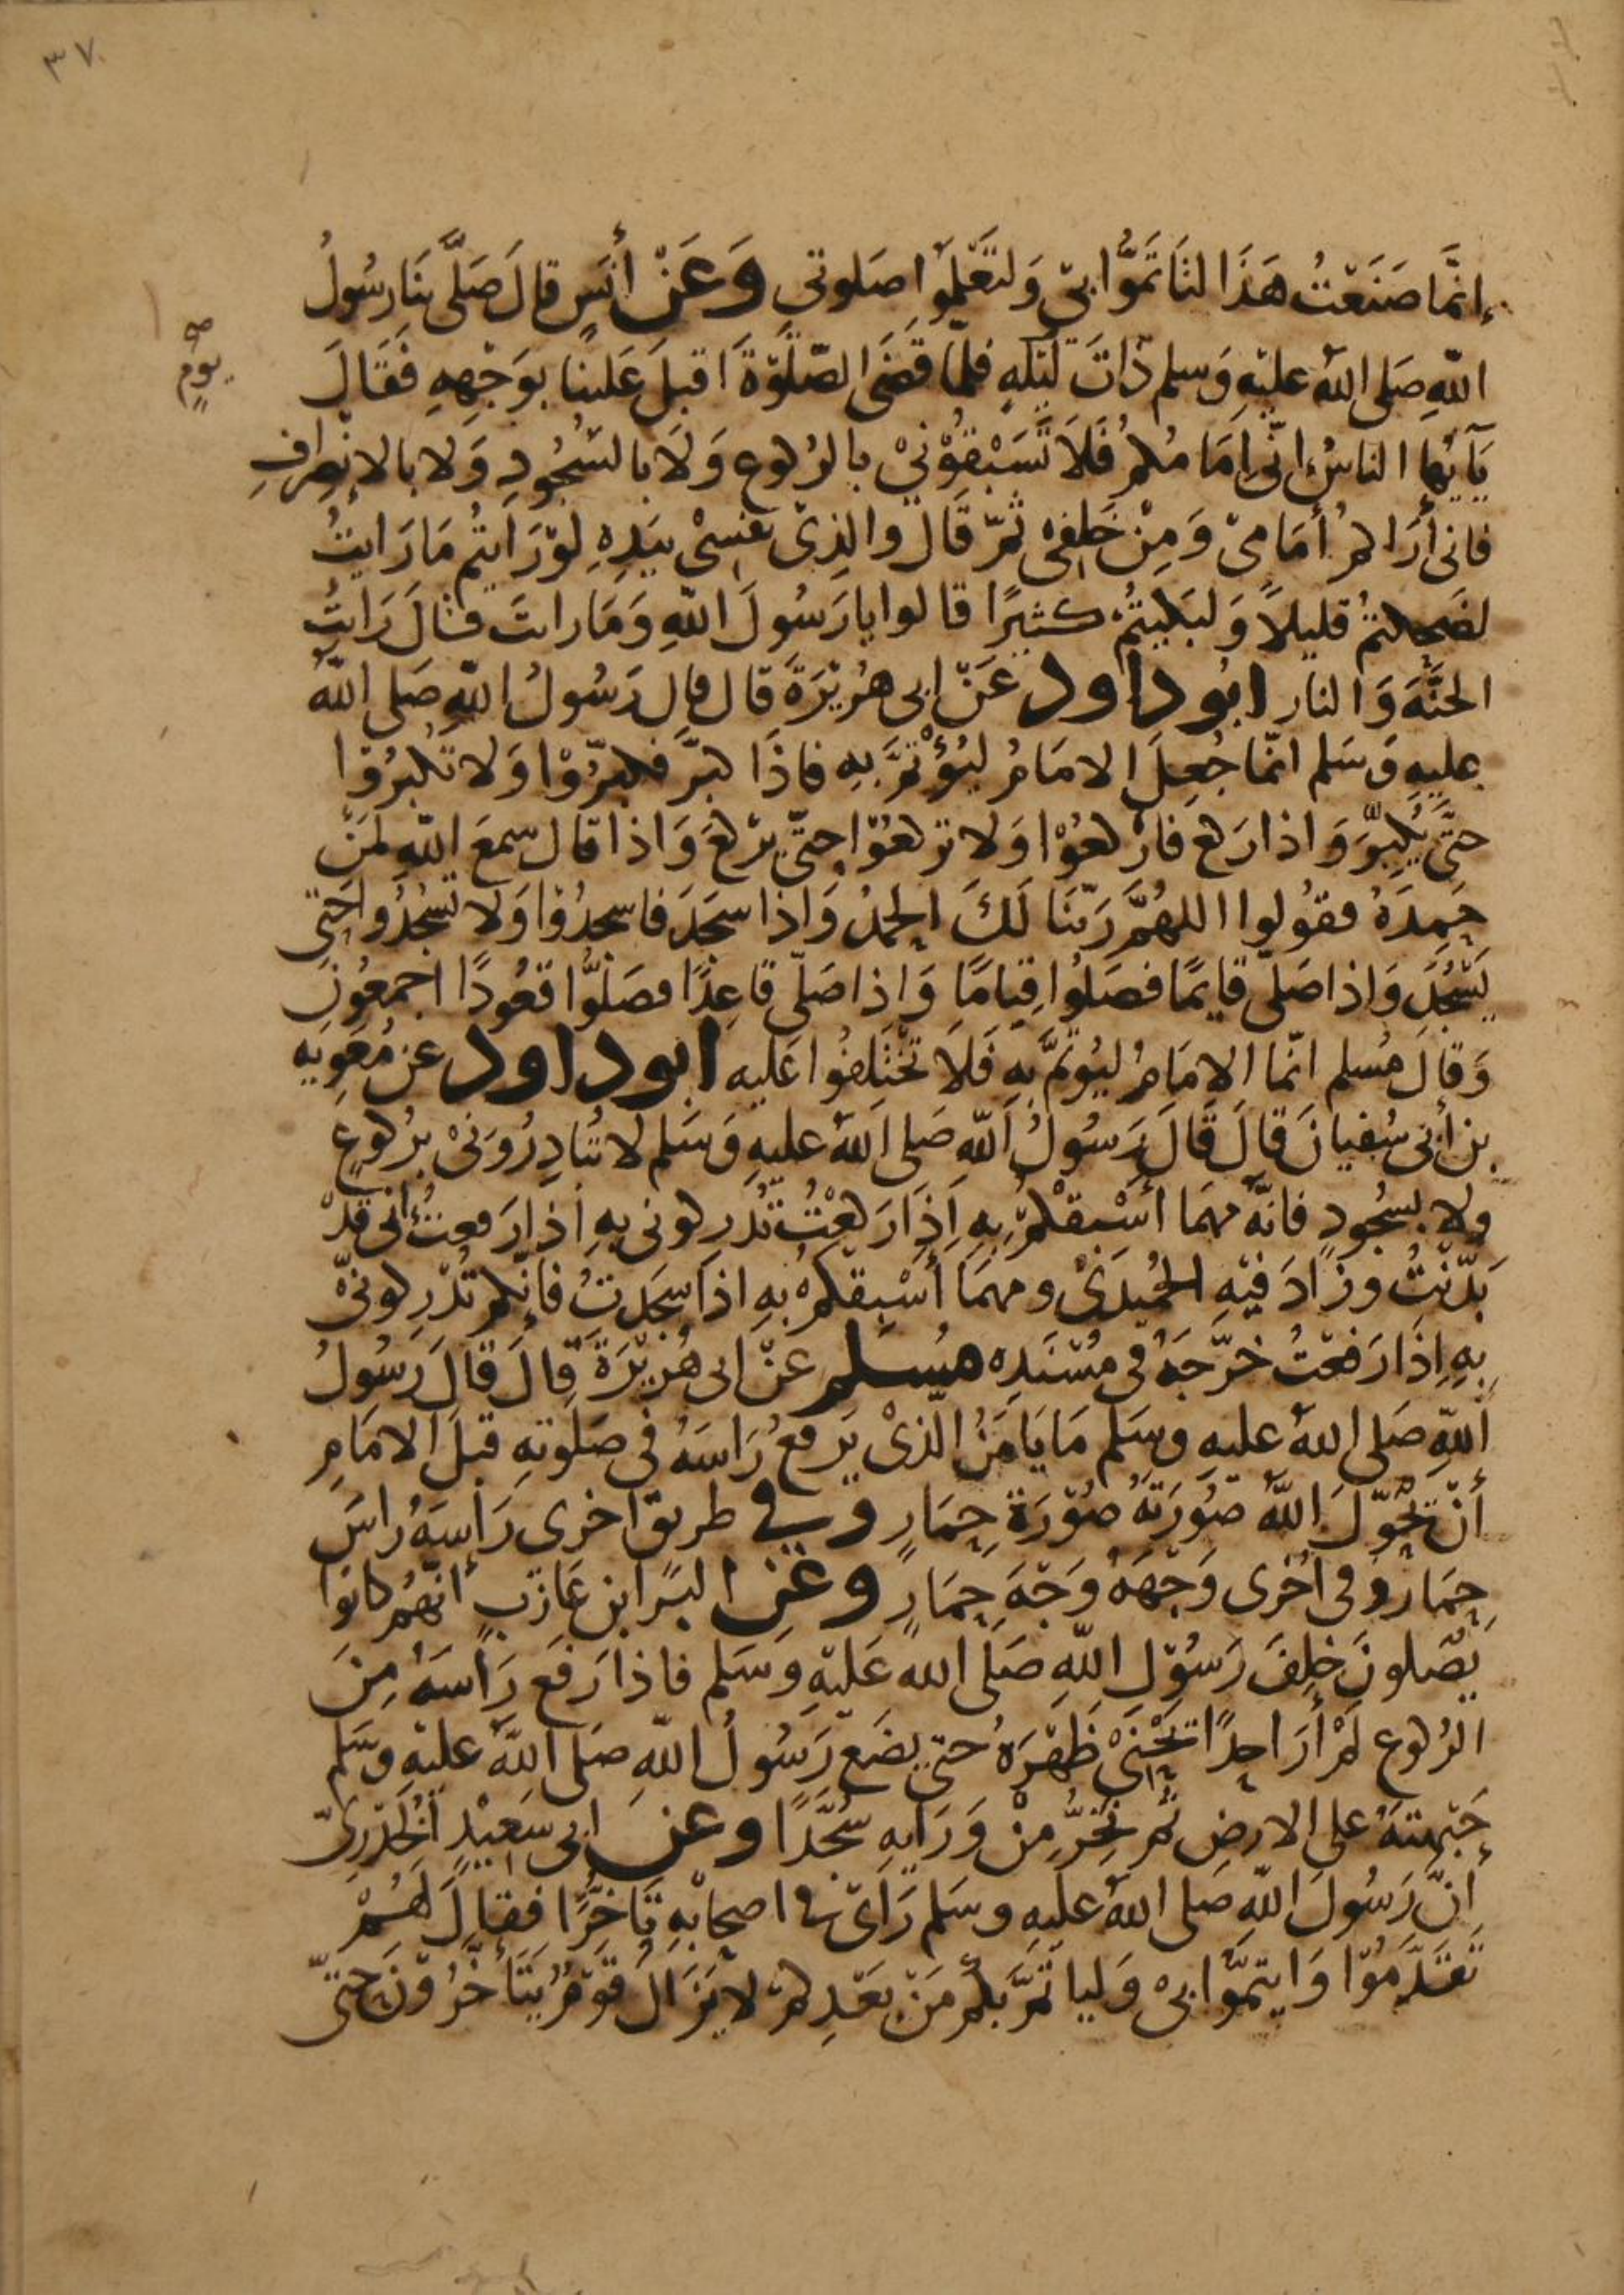 ٣٧
إنَّمَا صَنَعْتُ هَذَا لتَاتَمُّوا بِي وَلتَعَلَّمُوا صَلوتي وَعَنْ أنَسٍ قالَ صَلَّى بنَا رسُولُ
اللهِ صَلى اللهُ عليْهِ وَسلم ذاتَ ليْلهٍ فلمّا قضَى الصّلَوةَ اقبلَ عَلينا بوَجْهِهِ فَقَالَ
صح
يومٍ
يَآيُّها الناسُ انّي إمَامُكمُ فَلاَ تَسْبِقُوْنيْ بالرُكوعِ وَلاَ بالسُّجُودِ وَلا بالانْصِرافِ
فانى أرَاكمُ أمَامىْ وَمِنْ خَلفِىْ ثمّ قَالَ والذِىْ نفسِىْ بيَدِهِ لوْرَايتُم مَا رَايتُ
لضَحِكتمُ قليلاً وَلبَكيتُمُ كثيرًا قالوا يا رَسُولَ اللهِ وَمَا رايتَ قالَ رَايتُ
الجنَّةَ وَالنار ابُو داود عَنْ ابى هُرَيْرَةَ قال قال رَسُولُ اللهِ صَلى اللهُ
عليهِ وَسَلم انمّا جُعِلَ الامَامُ ليُؤْتمَّ بهِ فاذَا كبَّرَ فكبِّرُوْا وَلا تكبرُوْا
حتَّى يُكبِّرَ وَاذا رَكع فارْكعُوْا وَلا تركعُوْا حتّى يرْكعَ وَاذا قال سمعَ اللهُ لمَنْ
حَمِدَهُ فقُولوا اللهُمَّ رَبّنَا لَكَ الحمْدُ وَاذا سجَدَ فاسجدُوْا وَلا تسْجُدُوا حَتى
يَسْجُدَ وَاذا صَلّى قايمًا فصَلُوا قيَامًا وَاِذا صَلّى قاعِدًا فصَلُّوا قعُودًا اجمعُونَ
وَقالَ مُسلم انمّا الامَامُ ليُوتمَّ بهِ فَلاَ تخْتَلِفُوا عَليه ابو داود عن مُعَوِيَه
بن أبي سُفيانَ قالَ قالَ رَسُولُ اللهِ صَلى اللهُ عليهِ وَسَلم لا تُبَادِرُونيْ برُكوعٍ
ولا بسُجُودٍ فانهُ مهمَا أسْبِقْكُمْ بِهِ إذَا رَكعْتُ تُدْرِكوني بهِ اذا رَفعتُ اني قدْ
بَدّنْتُ وزَادَ فيْهِ الحُمَيْدىْ ومهمَا أسْبِقكمْ بهِ اذا سَجَدتُ فانكم تُدْرِكونيْ
بِهِ إذَا رَفعْتُ خرَّجَهُ في مُسْنَدِه مُسْلم عَنْ ابى هُرَيْرَةَ قالَ قَالَ رَسُولُ
اللهِ صَلى اللهُ عليهِ وسَلم مَا يَا مَنُ الّذىْ يَرفعُ رَاسَهُ في صَلوتهِ قبلَ الامَامِ
أنْ تحُوّلَ اللهُ صُورَتَهُ صُوْرَةَ حِمَارٍ وفى طريق اخرى رَأسَهُ راسَ
حِمَار وفى اخْرى وَجْهَهُ وَجْهَ حِمَارٍ وعَنِ البَرا بن عَازبٍ انّهُم كانوا
يُصَلونَ خلفَ رَسُوْلِ اللهِ صَلى اللهُ عَليْهِ وسَلم فاذا رَفعَ رَأسَهُ مِنَ
الرُكوعِ لمْ أرَ احدًا تحْنىْ ظهْرَهُ حتى يضَع رَسُولُ اللهِ صَلى اللهُ عليْهِ وسَلم
جَبْهتهُ على الارضِ ثم نخِرُّ مِنْ وَرَايهِ سُجَّدًا وعن ابي سَعِيْدٍ الخُدْرِىّ
انّ رَسُولَ اللهِ صلى اللهُ عليهِ وسَلم رَاىْ فى اصحابهِ تَاخّرًا فقالَ لهُمْ
تقدَّمُوْا وَايتمُّوا بىْ وَلياتمَّ بكُم مَنْ بَعْدِكمْ لا يَزَالُ قوْمُ يَتَأخّرُوْنَ حتىّ